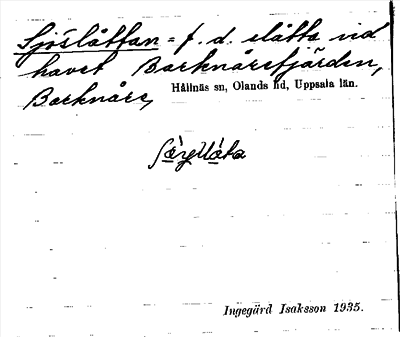 Sjöslåttan = f. d. slåtta vid
havet Barknåresfjärden,
Barknåre, Hållnäs sn, Olands hd, Uppsala län.
Ingegärd Isaksson 1935.